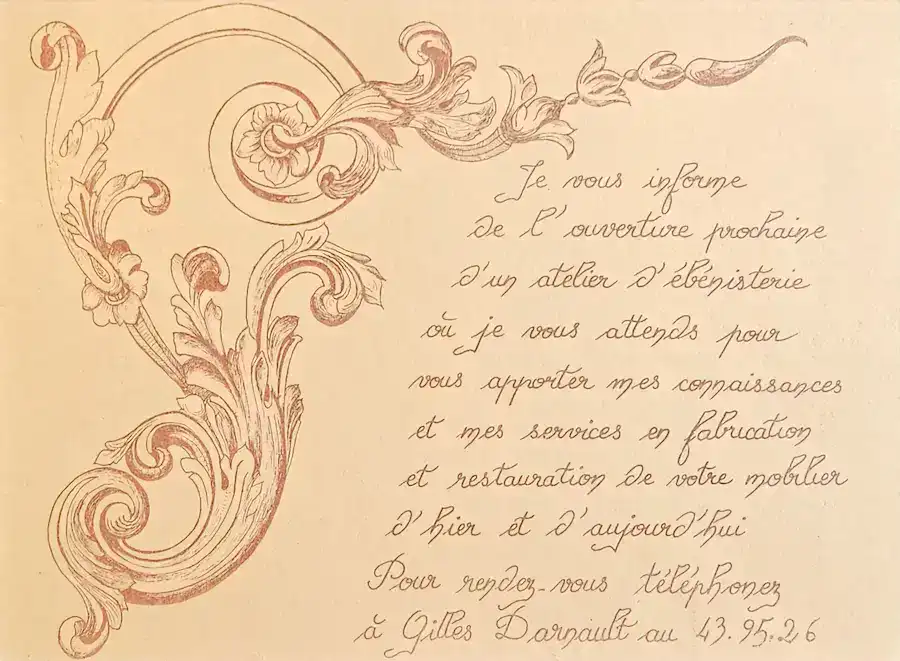 Je vous informe
de l'ouverture prochaine
d'un atelier d'ébénisterie
où je vous attends pour
vous apporter mes connaissances
et mes services en fabrication
et restauration de votre mobilier
d'hier et d'aujourd'hui
Pour rendez-vous téléphonez
à Gilles Darnault au 43.95.26